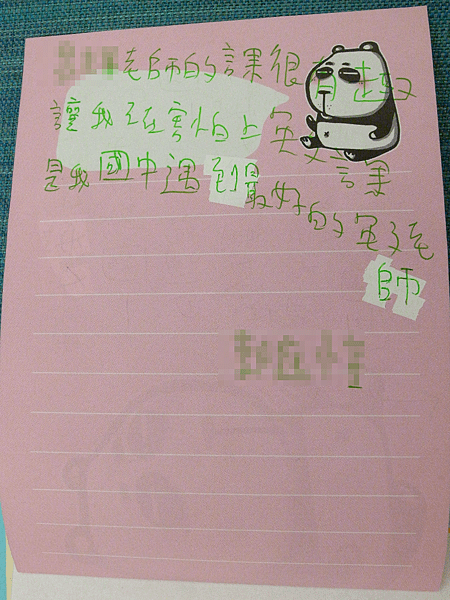 老師的課很有趣
讓我不在害怕上英文課
是我國中遇到最好的英文老
師